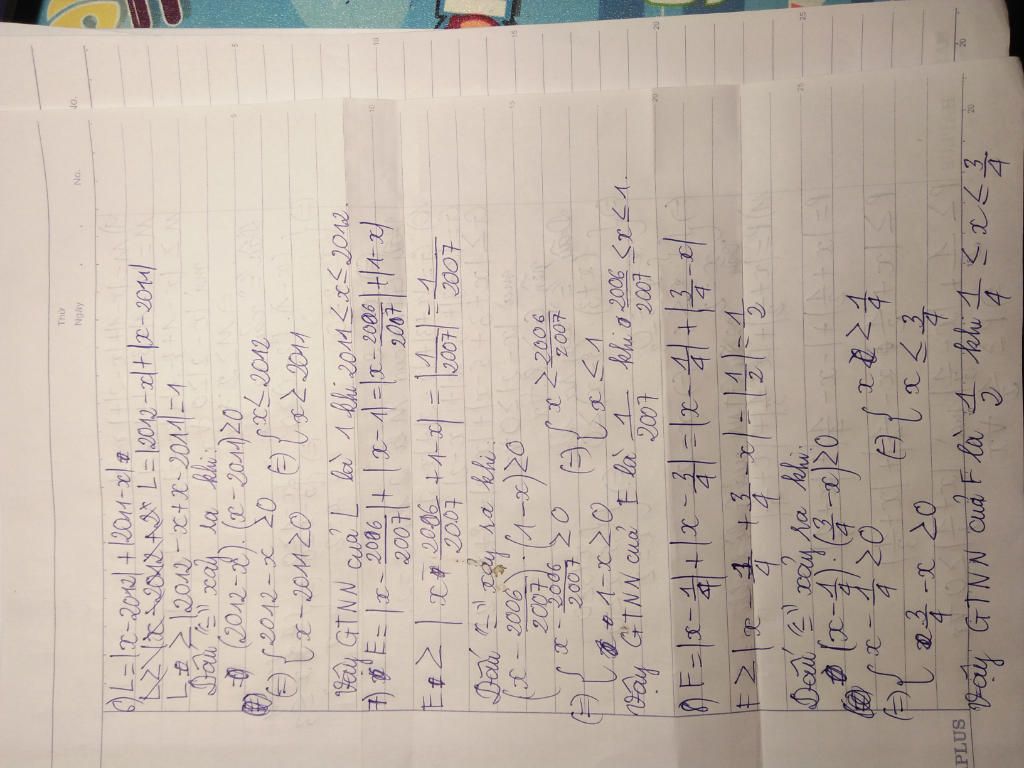 Thứ
Ngày
No.
No.
6) L = |x - 2012| + |2011 - x|
L = |2012 - x| + |x - 2011|
L ≥ |2012 - x + x - 2011| = 1
Dấu "=" xảy ra khi:
(2012 - x) . (x - 2011) ≥ 0
(=) { 2012 - x ≥ 0 (=) { x ≤ 2012
x - 2011 ≥ 0 x ≥ 2011
Vậy GTNN của L là 1 khi 2011 ≤ x ≤ 2012.
7) E = |x - 2006/2007| + |x - 1| = |x - 2006/2007| + |1 - x|
E ≥ |x - 2006/2007 + 1 - x| = |1/2007| = 1/2007
Dấu "=" xảy ra khi:
(x - 2006/2007) . (1 - x) ≥ 0
(=) { x - 2006/2007 ≥ 0 (=) { x ≥ 2006/2007
1 - x ≥ 0 x ≤ 1
Vậy GTNN của E là 1/2007 khi 2006/2007 ≤ x ≤ 1.
8) F = |x - 1/4| + |x - 3/4| = |x - 1/4| + |3/4 - x|
F ≥ |x - 1/4 + 3/4 - x| = |1/2| = 1/2
Dấu "=" xảy ra khi:
(x - 1/4) . (3/4 - x) ≥ 0
(=) { x - 1/4 ≥ 0 (=) { x ≥ 1/4
3/4 - x ≥ 0 x ≤ 3/4
Vậy GTNN của F là 1/2 khi 1/4 ≤ x ≤ 3/4
PLUS